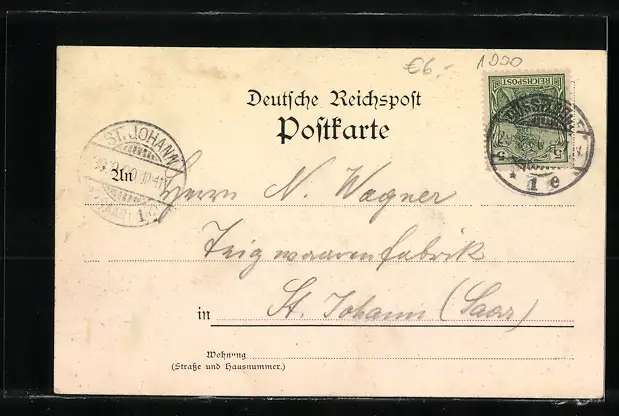 €6,- 1900
Deutsche Reichspost
Postkarte
REICHSPOST
5 5
1 e
ST. JOHANN
An
Herrn N. Wagner
Teigwaarenfabrik
in St. Johann (Saar)
Wohnung
(Straße und Hausnummer.)